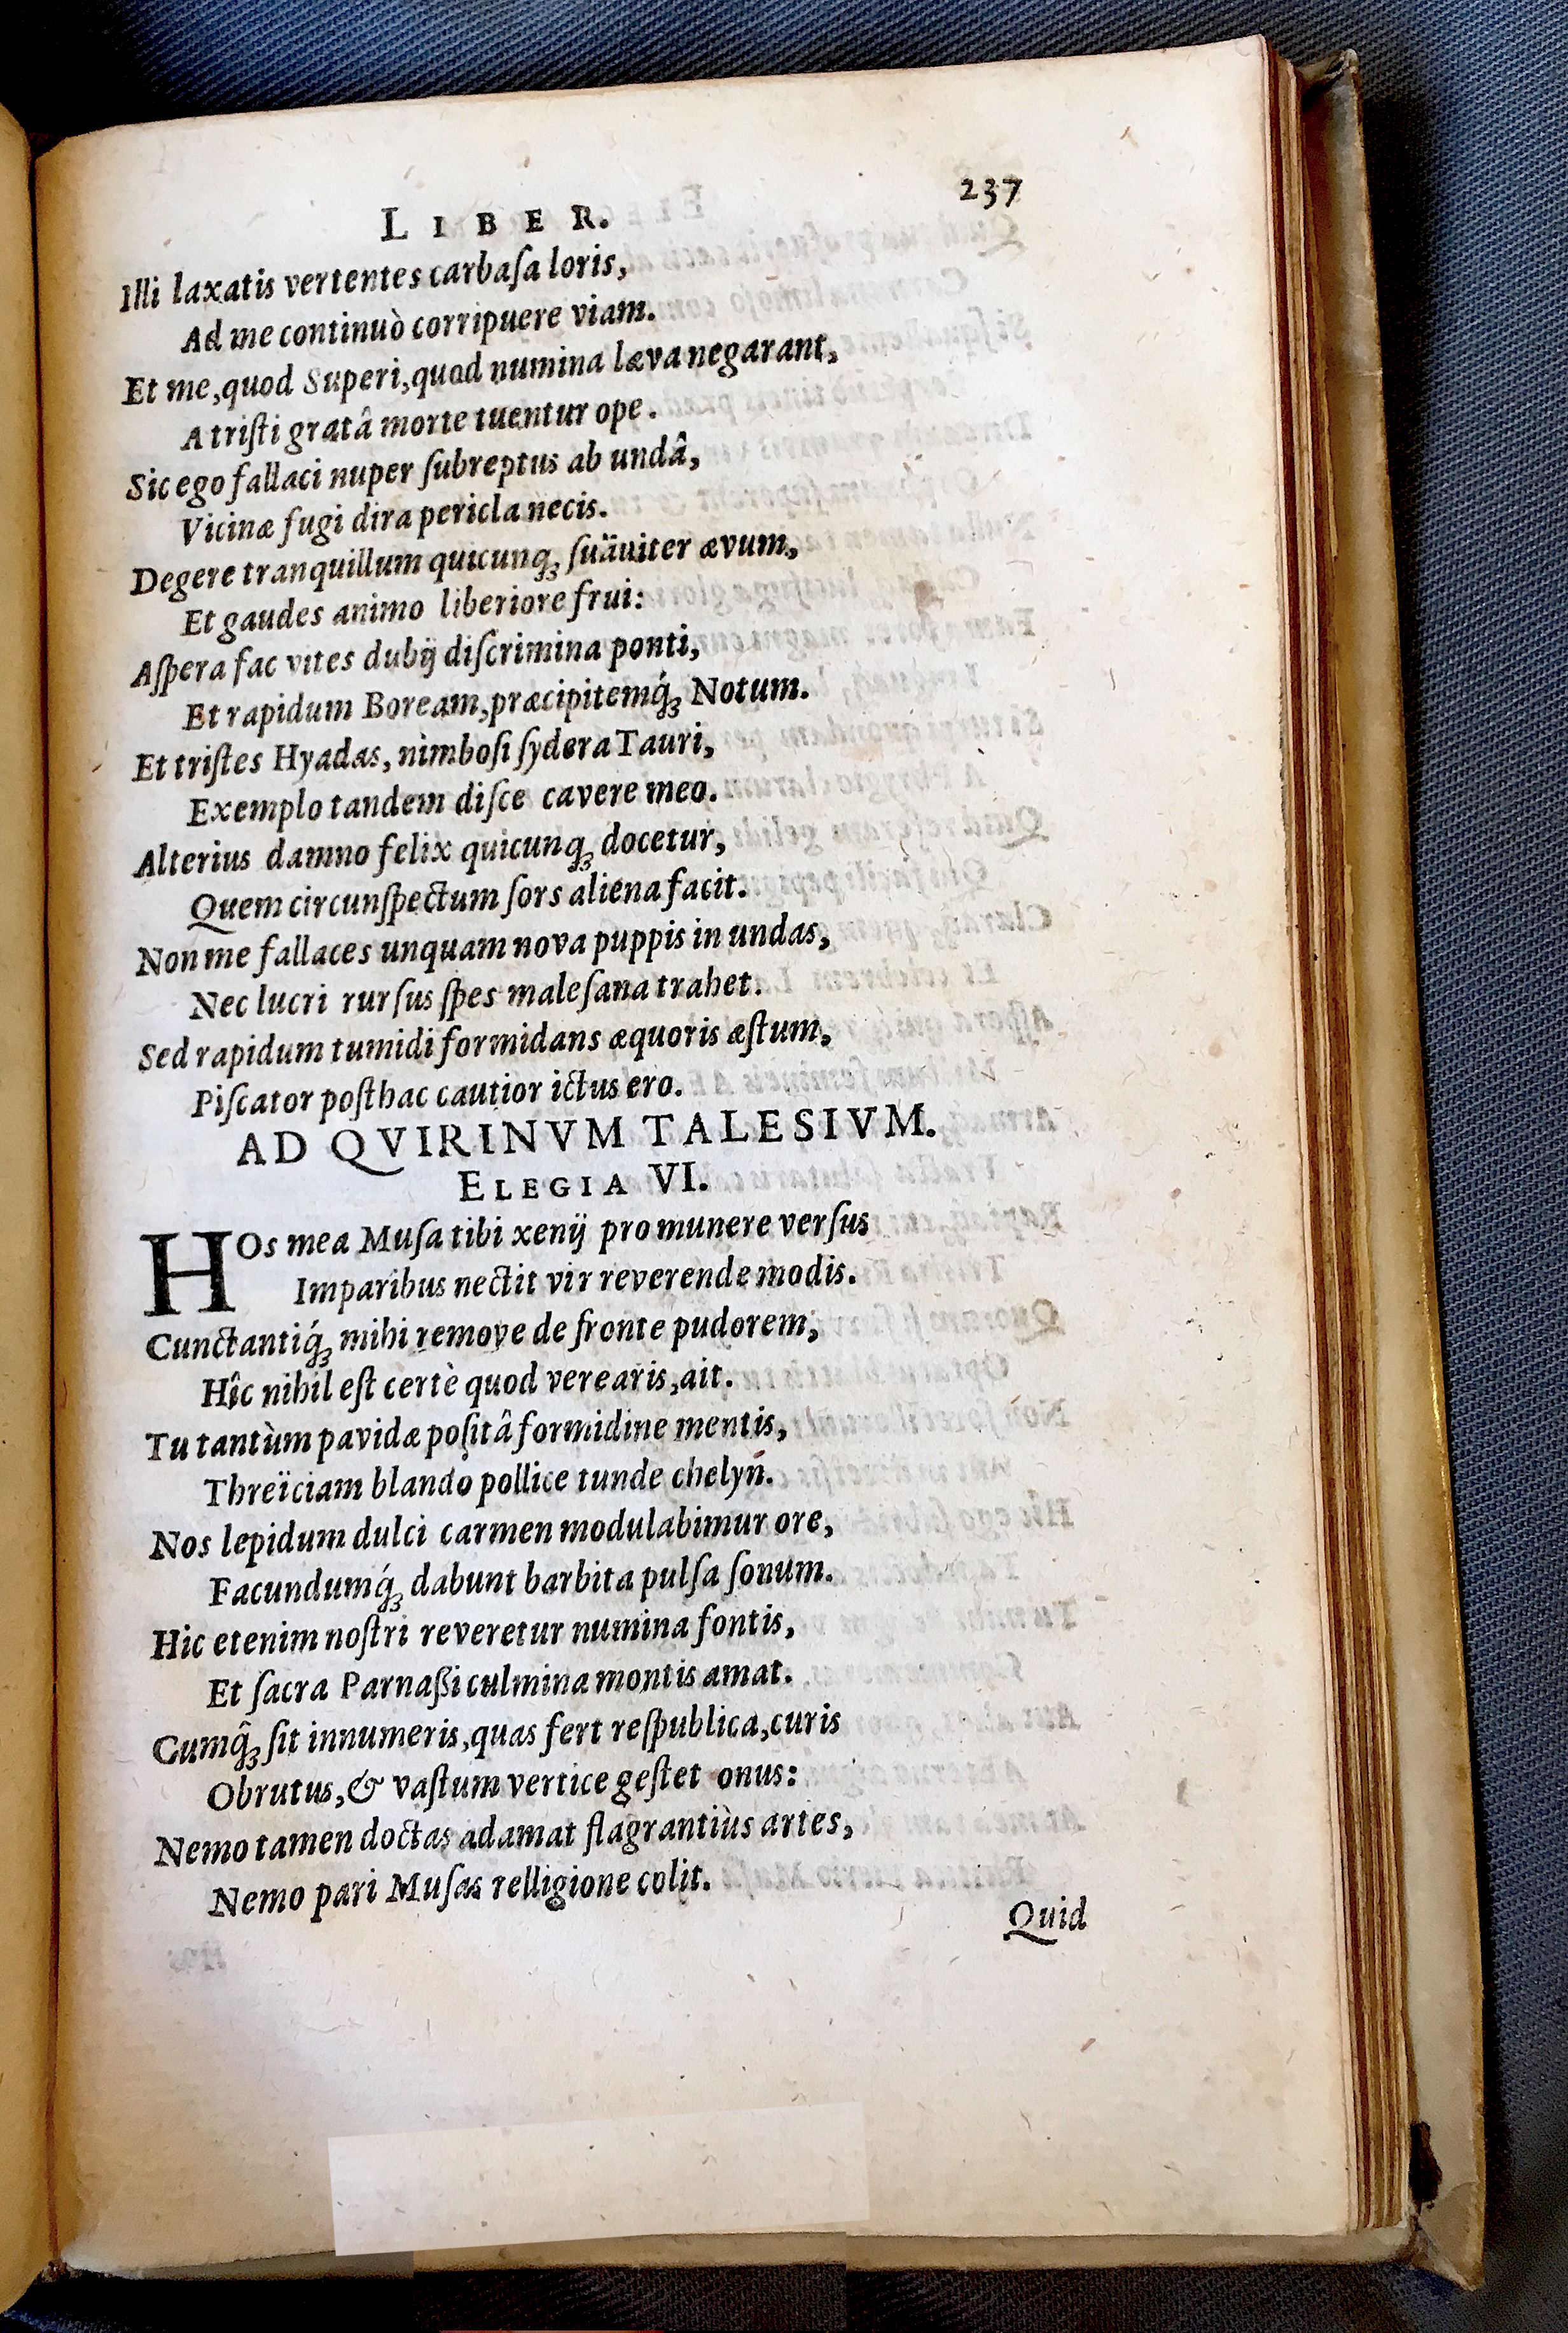 LIBER.
237
Illi laxatis vertentes carbaſa loris,
Ad me continuò corripuere viam.
Et me, quod Superi, quod numina læva negarant,
A triſti gratâ morte tuentur ope.
Sic ego fallaci nuper ſubreptus ab undâ,
Vicinæ fugi dira pericla necis.
Degere tranquillum quicunqꝫ ſuäviter ævum,
Et gaudes animo liberiore frui:
Aſpera fac vites dubij diſcrimina ponti,
Et rapidum Boream, præcipitemq́ꝫ Notum.
Et triſtes Hyadas, nimboſi ſydera Tauri,
Exemplo tandem diſce cavere meo.
Alterius damno felix quicunqꝫ docetur,
Quem circunſpectum ſors aliena facit.
Non me fallaces unquam nova puppis in undas,
Nec lucri rurſus ſpes maleſana trahet.
Sed rapidum tumidi formidans æquoris æſtum,
Piſcator poſthac cautior ictus ero.
AD QVIRINVM TALESIVM.
ELEGIA VI.
HOs mea Muſa tibi xenij pro munere verſus
Imparibus nectit vir reverende modis.
Cunctantiq́ꝫ mihi remove de fronte pudorem,
Hîc nihil eſt certè quod verearis, ait.
Tu tantùm pavidæ poſitâ formidine mentis,
Threïciam blando pollice tunde chelyn.
Nos lepidum dulci carmen modulabimur ore,
Facundumq́ꝫ dabunt barbita pulſa ſonum.
Hic etenim noſtri reveretur numina fontis,
Et ſacra Parnaßi culmina montis amat.
Cumq̂ꝫ ſit innumeris, quas fert reſpublica, curis
Obrutus, & vaſtum vertice geſtet onus:
Nemo tamen doctas adamat flagrantiùs artes,
Nemo pari Muſas relligione colit.
Quid